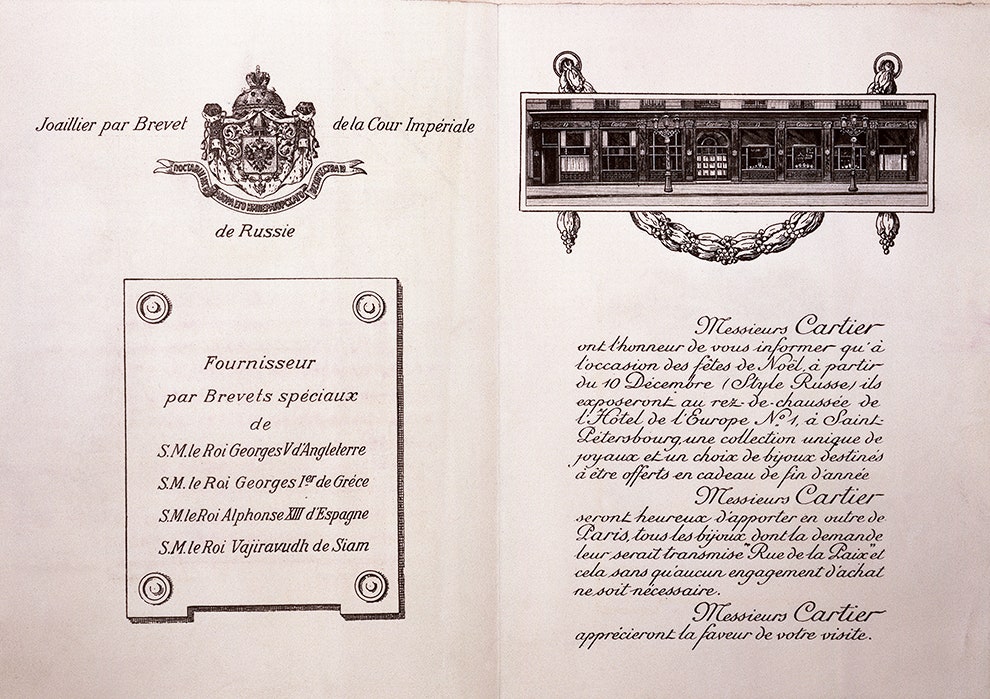 Joaillier par Brevet de la Cour Impériale
ПОСТАВЩИКЪ ДВОРА ЕГО ИМПЕРАТОРСКАГО ВЕЛИЧЕСТВА
de Russie
Fournisseur
par Brevets spéciaux
de
S.M.le Roi Georges V d'Angleterre
S.M. le Roi Georges Ier de Gréce
S.M.le Roi Alphonse XIII d'Espagne
S.M.le Roi Vajiravudh de Siam
Messieurs Cartier
ont l'honneur de vous informer qu'à
l'occasion des fêtes de Noël, à partir
du 10 Décembre (Style Russe) ils
exposeront au rez-de-chaussée de
l'Hôtel de l'Europe Nº 1, à Saint-
Pétersbourg, une collection unique de
joyaux et un choix de bijoux destinés
à être offerts en cadeau de fin d'année
Messieurs Cartier
seront heureux d'apporter en outre de
Paris, tous les bijoux dont la demande
leur serait transmise "Rue de la Paix" et
cela sans qu'aucun engagement d'achat
ne soit nécessaire.
Messieurs Cartier
apprécieront la faveur de votre visite.